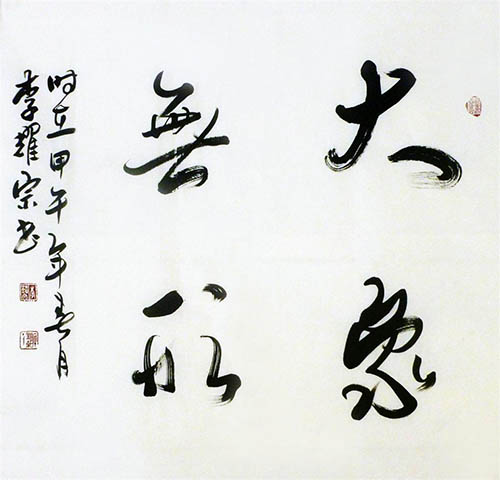 大象
無形
时在甲午年春月
李耀宗书